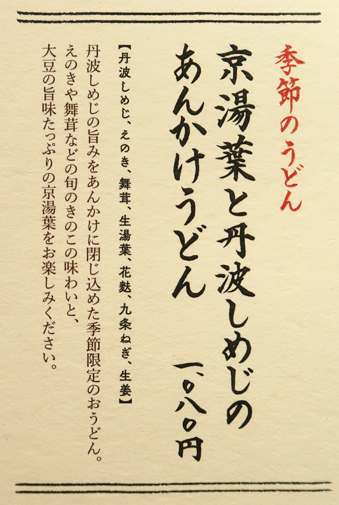 季節のうどん
京湯葉と丹波しめじの
あんかけうどん 一、〇八〇円
【丹波しめじ、えのき、舞茸、生湯葉、花麩、九条ねぎ、生姜】
丹波しめじの旨みをあんかけに閉じ込めた季節限定のおうどん。
えのきや舞茸などの旬のきのこの味わいと、
大豆の旨味たっぷりの京湯葉をお楽しみください。